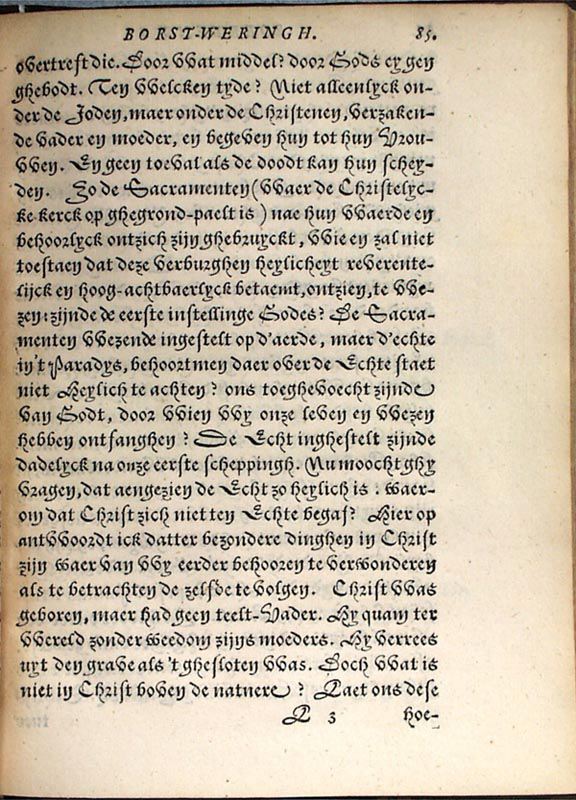 BORST-WERINGH. 85.
overtreft die. Door VVat middel? door Gods eygen
ghebodt. Ten VVelcken tyde? Niet alleenlyck on-
der de Joden, maer onder de Christenen, verzaken-
de vader en moeder, en begeven hun tot hun Vrou-
VVen. En geen toeval als de doodt kan hun schey-
den. Zo de Sacramenten (VVaer de Christelyc-
ke kerck op ghegrond-paelt is) nae hun VVaerde en
behoorlyck ontzich zijn ghebruyckt, VVie en zal niet
toestaen dat deze verburghen heylicheyt reverente-
lijck en hoog-achtbaerlyck betaemt, ontzien, te VVe-
zen: zijnde de eerste instellinge Godes? De Sacra-
menten VVezende ingestelt op d'aerde, maer d'echte
in't Paradys, behoort men daer over de Echte staet
niet Heylich te achten? ons toeghevoecht zijnde
van Godt, door VVien VVy onze leven en VVezen
hebben ontfanghen? De Echt inghestelt zijnde
dadelyck na onze eerste scheppingh. Nu moocht ghy
vragen, dat aengezien de Echt zo heylich is. waer-
om dat Christ zich niet ten Echte begaf? Hier op
antVVoordt ick datter bezondere dinghen in Christ
zijn waer van VVy eerder behooren te verwonderen
als te betrachten de zelfde te volgen. Christ VVas
geboren, maer had geen teelt-Vader. Hy quam ter
VVereld zonder weedom zijns moeders. Hy verrees
uyt den grave als 't ghesloten VVas. Doch VVat is
niet in Christ boven de natuere? Laet ons dese
3 hoe-